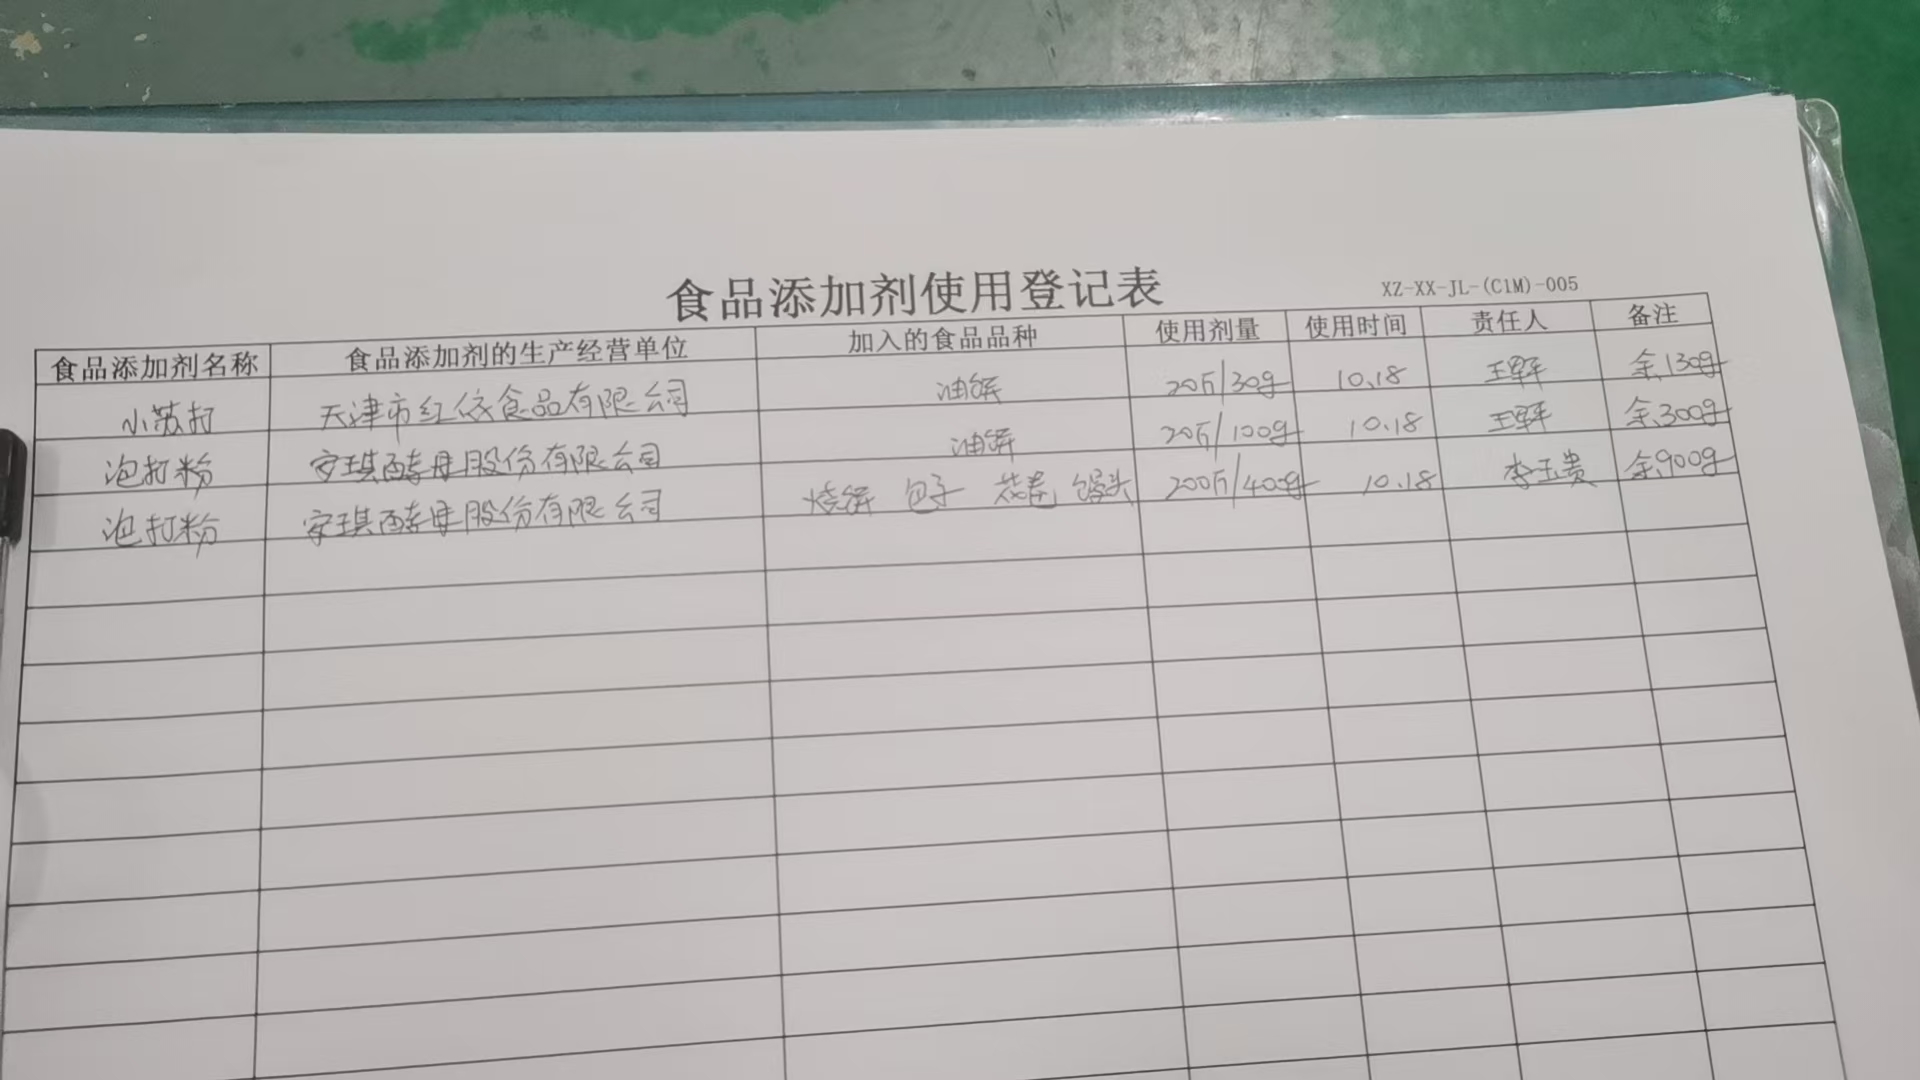 食品添加剂使用登记表
XZ-XX-JL-(C1M)-005
食品添加剂名称 食品添加剂的生产经营单位 加入的食品品种 使用剂量 使用时间 责任人 备注
小苏打 天津市红仪食品有限公司 油饼 20斤/30g 10.18 王军 余130g
泡打粉 安琪酵母股份有限公司 油饼 20斤/100g 10.18 王军 余300g
泡打粉 安琪酵母股份有限公司 烧饼 包子 花卷 馒头 200斤/400g 10.18 李玉贵 余900g